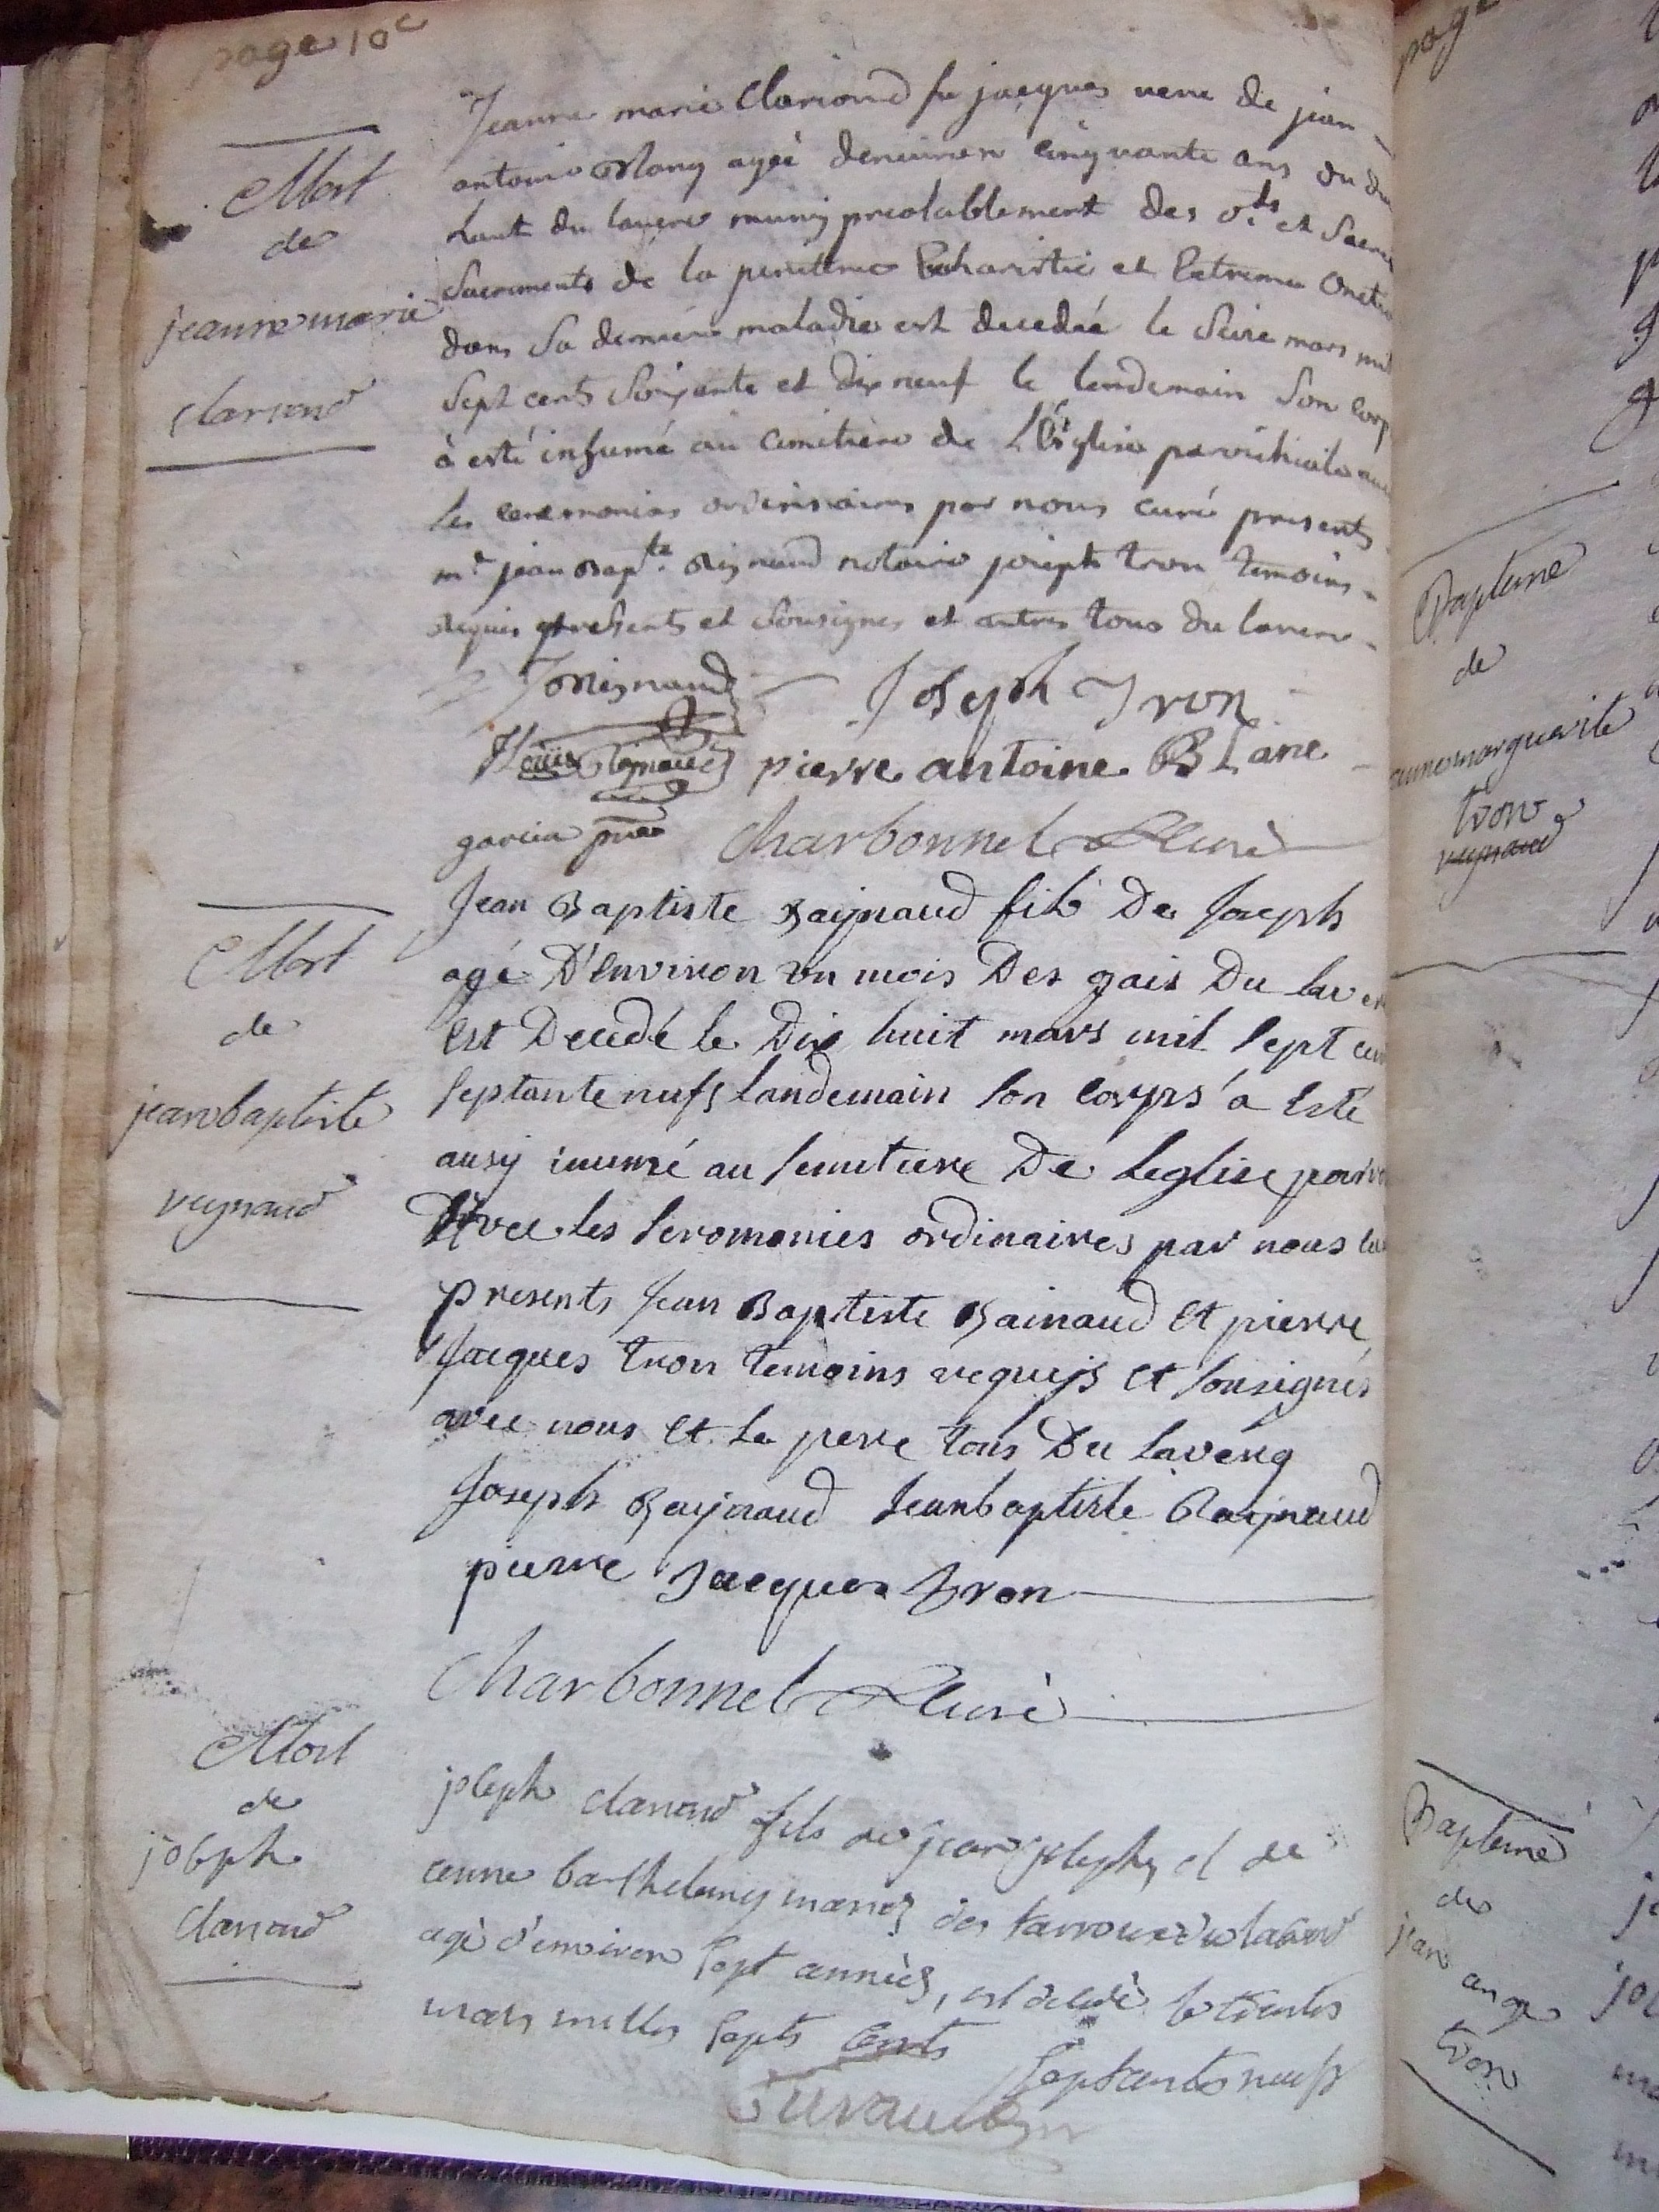 page 10e
Mort
de
jeanne marie
clariond
Jeanne marie Clariond fu jacques veuve de jean
antoine Blanq agée denviron cinquante ans du
haut du laverq muny prealablement des et Sacrés
Sacrements de la penitence Euharistie et Extreme Onction
dans Sa derniere maladie est decedée le Seize mars mil
Sept cents Soixante et dix neuf le lendemain Son corps
à esté inhumé au Cimitiere de L'Église parroichiale avec
les ceremonies ordinaires par nous curé presents
mr jean Bapte. Reynaud notaire joseph tron temoins
requis presents et Sousignes et autres tous du laverq
Joseph Tron
pierre antoine BLanc
garcin pre
Charbonnel Curè
Mort
de
jeanbaptiste
reynaud
Jean Baptiste Raynaud fils De Joseph
agé D'environ un mois Des gais Du laverq
Est Decedé le Dix huit mars mil Sept cent
Septante neufs landemain Son corps a Esté
ausy inumé au Semetiere De Leglise parroi
Avec les Seromonies ordinaires par nous Cu
presents Jean Baptiste Rainaud Et pierre
Jacques tron temoins requijs Et Sousignés
avec nous Et Le pere tous Du Laverq
Joseph Raynaud Jeanbaptiste Raynaud
pierre Jacques Tron
Charbonnel Curè
Mort
de
joseph
clariond
joseph clariond fils de jean joseph et de
anne barthelemy mariés des du laverq
agé d'environ Sept années, est decedé le trente
mars milles Septs Cents Septante neufs
page
Bapteme
de
annemarguerite
tron
reynaud
Bapteme
de
jean ange
tron